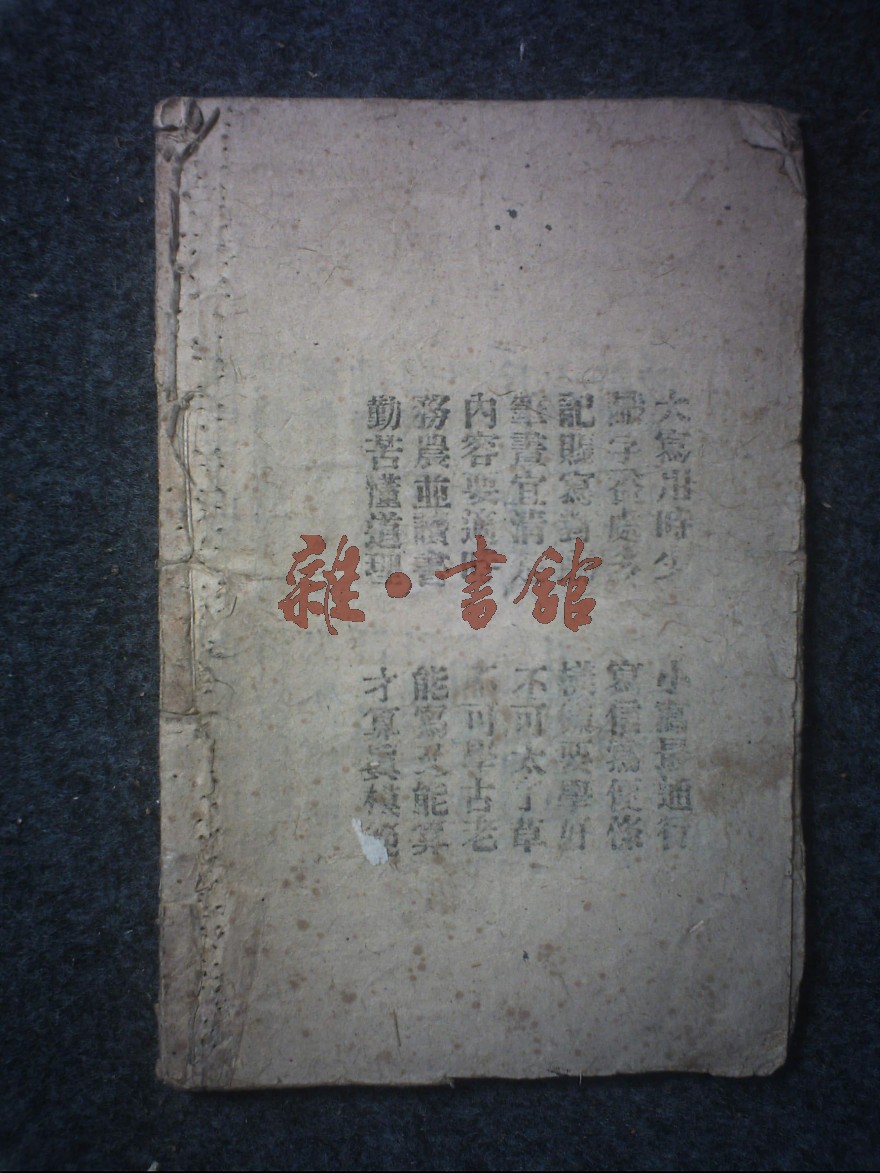 大寫用時少 小寫最通行
字處多 寫信寫便條
記賬寫對 要學好
筆畫宜清 不可太了草
內容要適 不可學古老
務農並讀書 能寫又能算
勤苦懂道理 才算眞模範
雜·書館